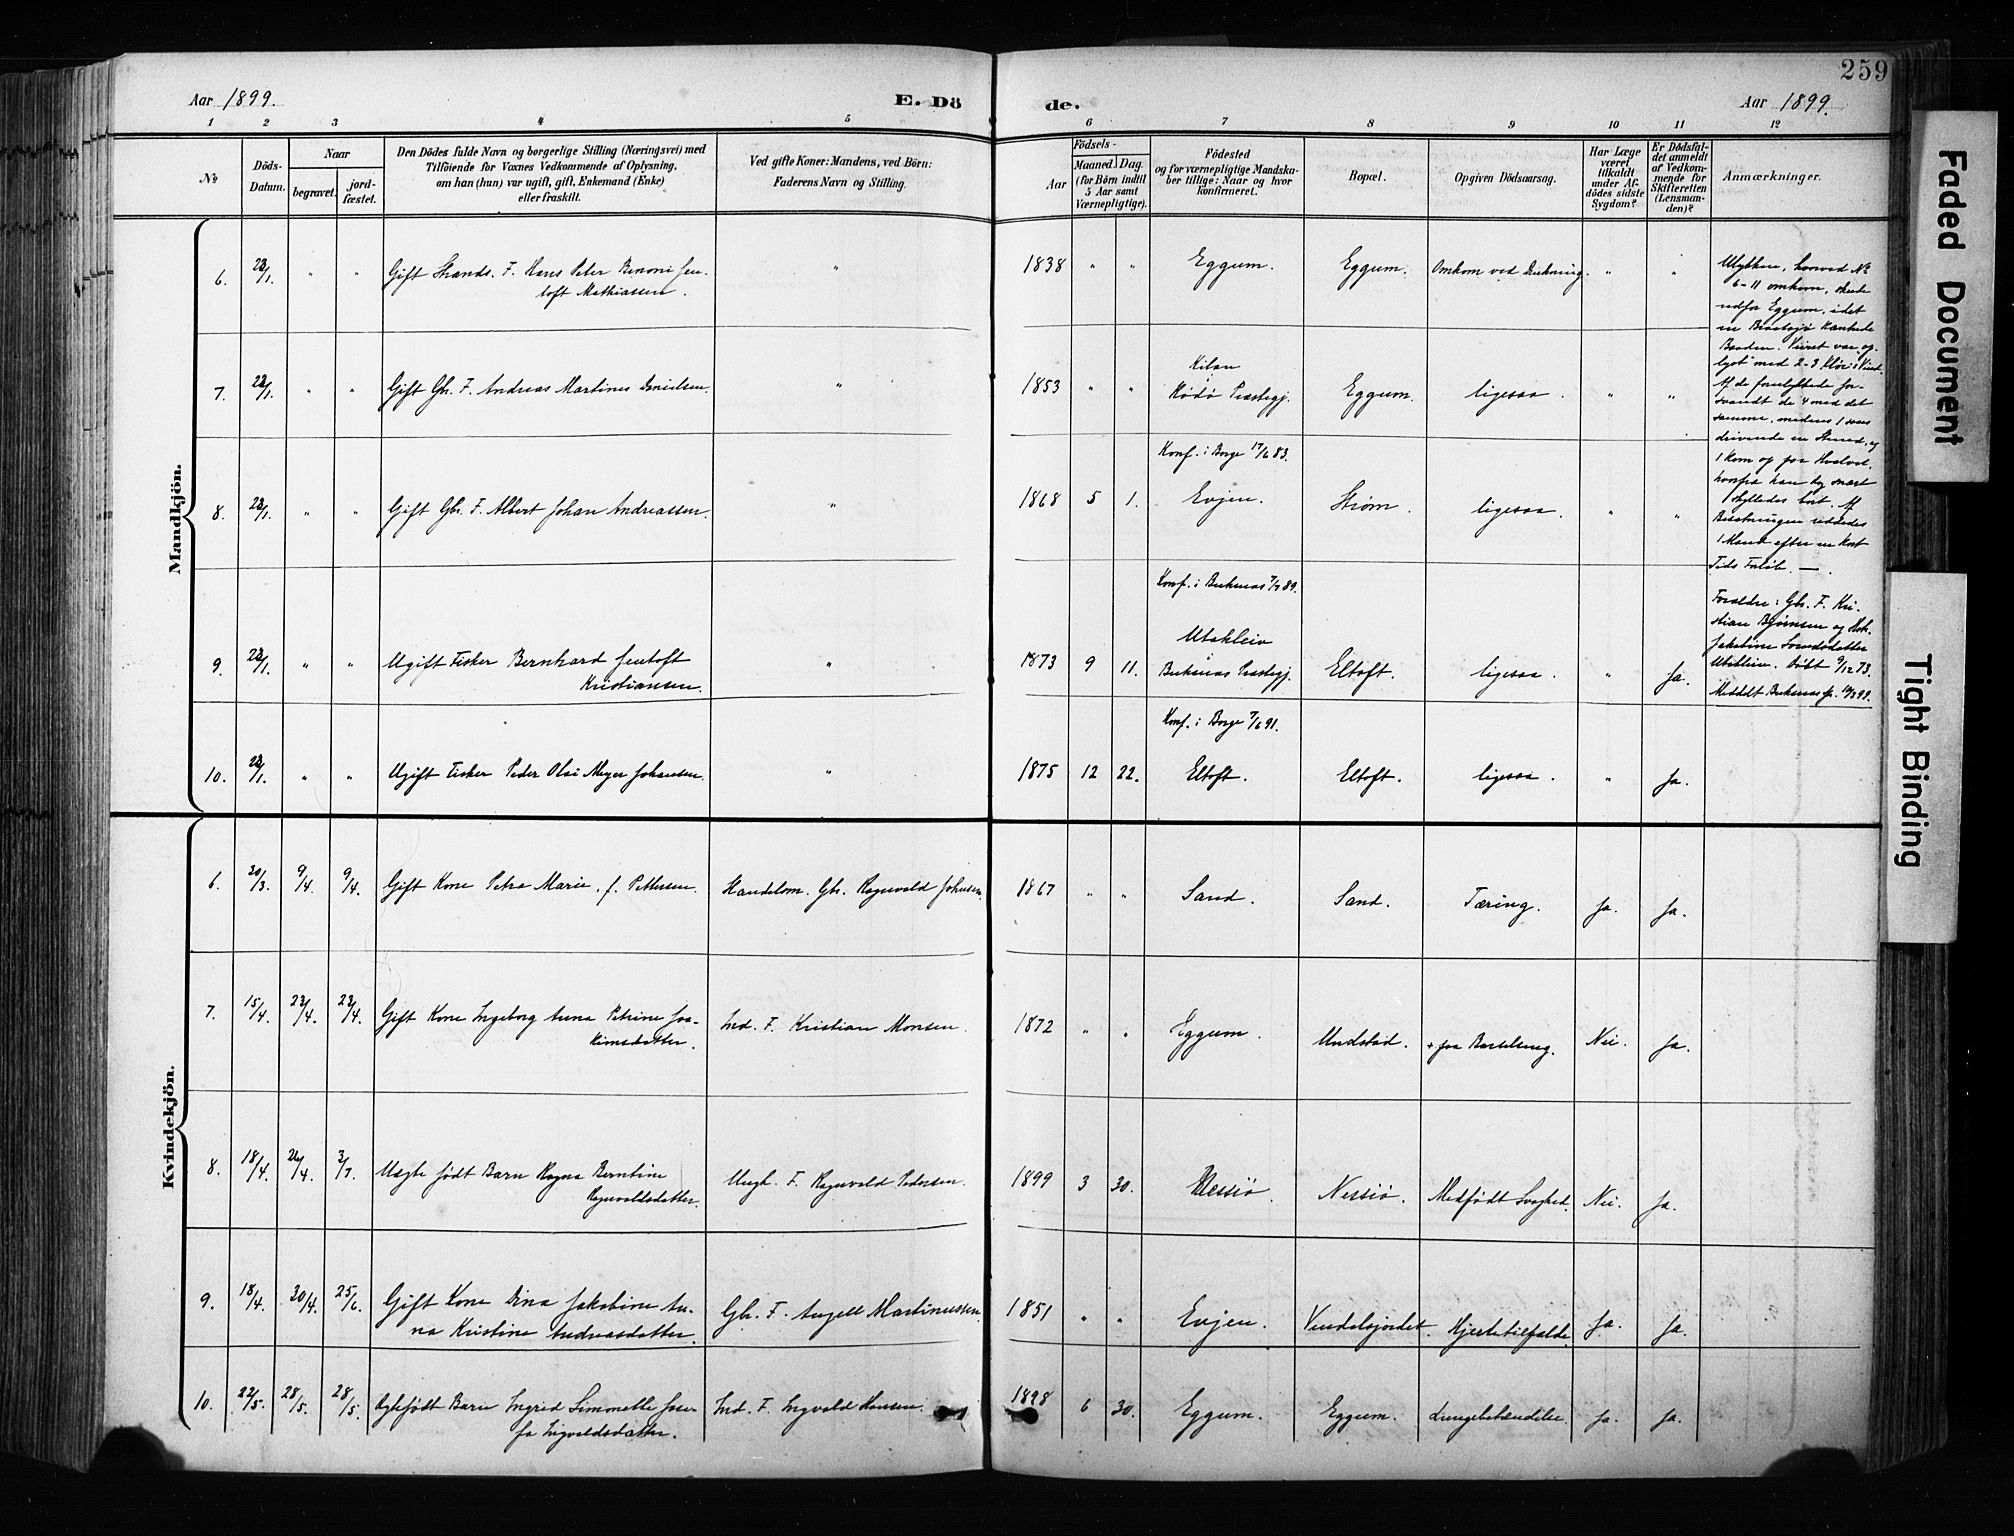 259
Aar 1899.
E. Dö
de.
Aar 1899.
1 2 3 4 5 6 7 8 9 10 11 12
№
Döds-Datum.
Naar
begravet.
jord-fæstet.
Den Dödes fulde Navn og borgerlige Stilling (Næringsvei) med
Tilföiende for Voxnes Vedkommende af Oplysning,
om han (hun) var ugift, gift, Enkemand (Enke)
eller fraskilt.
Ved gifte Koner: Mandens, ved Börn:
Faderens Navn og Stilling.
Födsels-
Aar
Maaned. Dag.
(for Börn indtil
5 Aar samt
Værnepligtige).
Födested
og for værnepligtige Mandska-
ber tillige: Naar og hvor
konfirmeret.
Bopæl.
Opgiven Dödsaarsag.
Har Læge
været
tilkaldt
under Af-
dödes sidste
Sygdom?
Er Dödsfal-
det anmeldt
af Vedkom-
mende for
Skifteretten
(Lensman-
den)?
Anmærkninger.
Mandkjön.
6. 23/1. " " Gift Strands. F. Hans Peter Benoni Jen-
toft Mathiassen. " 1838 " " Eggum. Eggum. Omkom ved Drukning. " "
Ulykken, hvorved No
6-11 omkom, skede
udfor Eggum, idet
en Braatsjø kantrede
Baaden.
7. 23/1. " " Gift Gbr. F. Andreas Martinus Danielsen. " 1853 " " Kilan
Rödö Prestegj. Eggum. ligesaa. " "
Af de forulykkede for-
svandt de 4 med det
samme, medens 1 saaes
drivende en Stund, og
1 kom op paa Hvælvet,
hvorfra han dog snart
skylledes bort. Af
Besætningen reddedes
1 Mand efter en kort
Tids Forløb. —.
8. 23/1. " " Gift Gbr. F. Albert Johan Andreassen. " 1868 5 1. Konf. i Borge 17/6 83.
Evjen. Strøm. ligesaa. " "
9. 23/1. " " Ugift Fisker Bernhard Jentoft
Kristiansen. " 1873 9 11. Konf. i Buksnæs 7/7 89.
Utakleiv
Buksnæs Prestegj. Eltoft. ligesaa. " Ja.
Forældre: Gbr. F. Kri-
stian Bjørnsen og Hstr.
Utakleiv. Døbt 9/12 73.
10. 23/1. " " Ugift Fisker Peder Olai Meyer Johansen. " 1875 12 22. Konf. i Borge 7/6 91.
Eltoft. Eltoft. ligesaa. " Ja.
Kvindekjön.
6. 20/3. 9/4. 9/4. Gift Kone Petra Marie, f. Pettersen. Handelsm. Gbr. Ragnvald Johnsen. 1867 " " Sand. Sand. Tæring. Ja. Ja.
7. 15/4. 23/4. 23/4. Gift Kone Ingeborg Anna Petrine Joa-
kimsdatter. Ind. F. Kristian Monsen. 1872 " " Eggum. Unstad. + paa Barselseng. Nei. Ja.
8. 18/4. 26/4. 2/7. Uægte født Barn Ragna Berntine
Ragnvaldsdatter. Ungk. F. Ragnvald Pedersen. 1899 3 30. Nessjø. Nessjø. Medfødt Svaghed. Nei. Ja.
9. 18/4. 30/4. 25/6. Gift Kone Dina Jakobine An-
na Kristina Andreasdatter. Gbr. F. Angell Martinussen. 1851 " " Evjen. Vendalsjordet. Hjertetilfælde. Ja. Ja.
10. 22/5. 28/5. 28/5. Ægtefødt Barn Ingrid Simonette Jose-
fa Ingvaldsdatter. Ind. F. Ingvald Hansen. 1898 6 30. Eggum. Eggum. Lungebetændelse. Ja. Ja.
Faded Document
Tight Binding